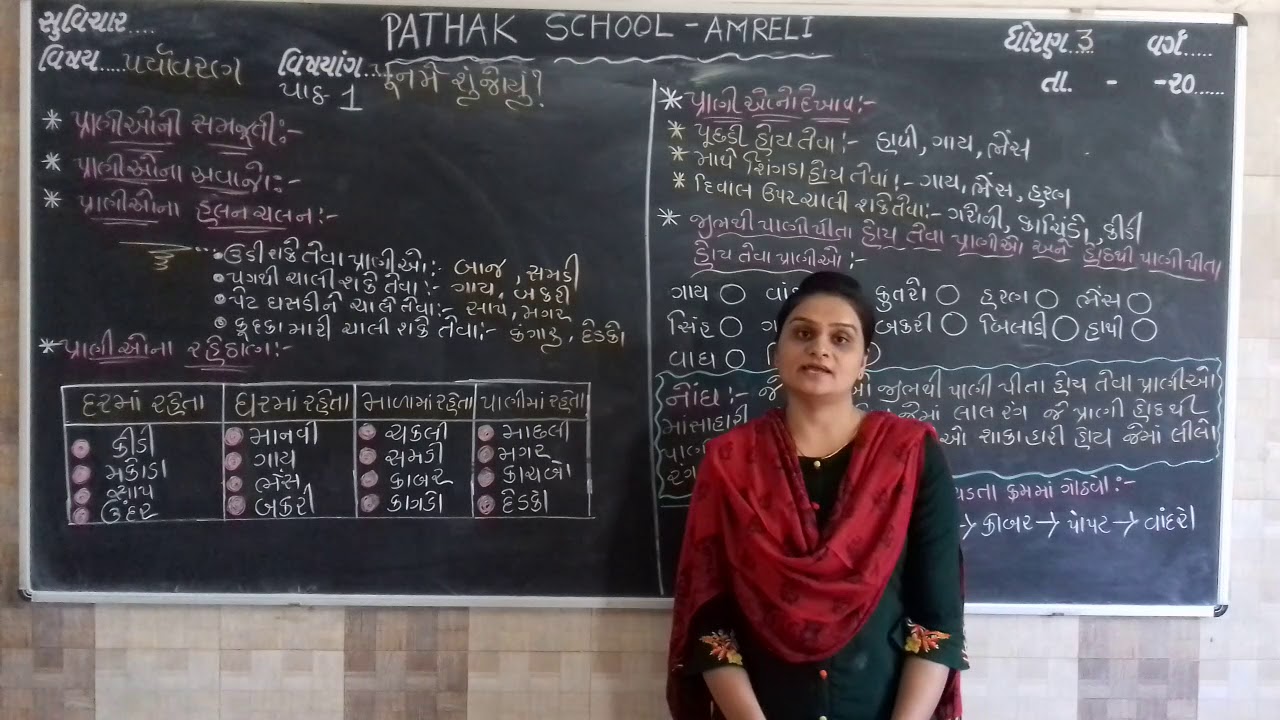 સુવિચાર....
PATHAK SCHOOL - AMRELI
ધોરણ 3 વર્ગ.....
વિષય.....પર્યાવરણ વિષયાંગ
પાઠ 1 શું જોયું?
તા. - -૨૦......
* પ્રાણીઓની સમજૂતી:-
* પ્રાણીઓના અવાજો:-
* પ્રાણીઓના હલનચલન:-
• ઉડી શકે તેવા પ્રાણીઓ:- બાજ, સમડી
• પગથી ચાલી શકે તેવા:- ગાય, બકરી
• પેટ ઘસડીને ચાલે તેવા:- સાપ, મગર
• કૂદકા મારી ચાલી શકે તેવા:- કંગારૂ, દેડકો
* પ્રાણીઓના રહેઠાણ:-
દરમાં રહેતા ઘરમાં રહેતા માળામાં રહેતા પાણીમાં રહેતા
કીડી માનવી ચકલી માછલી
મકોડા ગાય સમડી મગર
સાપ ભેંસ કાબર કાચબો
ઉંદર બકરી કાગડો દેડકો
* પ્રાણીઓનો દેખાવ:-
* પૂછડી હોય તેવા:- હાથી, ગાય, ભેંસ
* માથે શિંગડા હોય તેવા:- ગાય, ભેંસ, હરણ
* દિવાલ ઉપર ચાલી શકે તેવા:- ગરોળી, કાચિંડો, કીડી
* જીભથી પાણી પીતા હોય તેવા પ્રાણીઓ અને હોઠથી પાણી પીતા
હોય તેવા પ્રાણીઓ:-
ગાય કુતરો હરણ ભેંસ
સિંહ બકરી બિલાડી હાથી
વાઘ
નોંધ:- જીભથી પાણી પીતા હોય તેવા પ્રાણીઓ
માંસાહારી જેમાં લાલ રંગ જે પ્રાણી હોઠથી
પાણી શાકાહારી હોય જેમાં લીલો
રંગ
ચડતા ક્રમમાં ગોઠવો:-
→ કાબર → પોપટ → વાંદરો